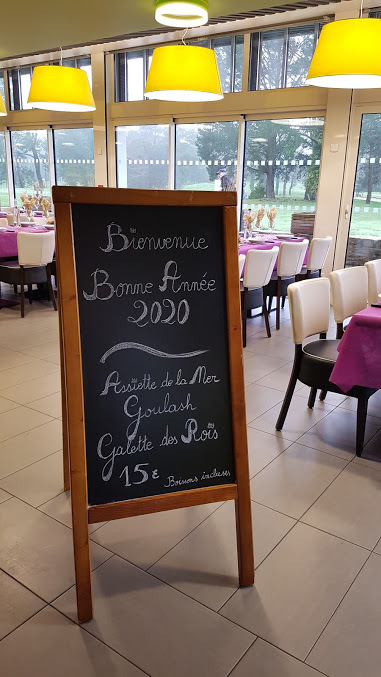 Bienvenue
Bonne Année
2020
Assiette de la Mer
Goulash
Galette des Roïs
15€ Boissons incluses